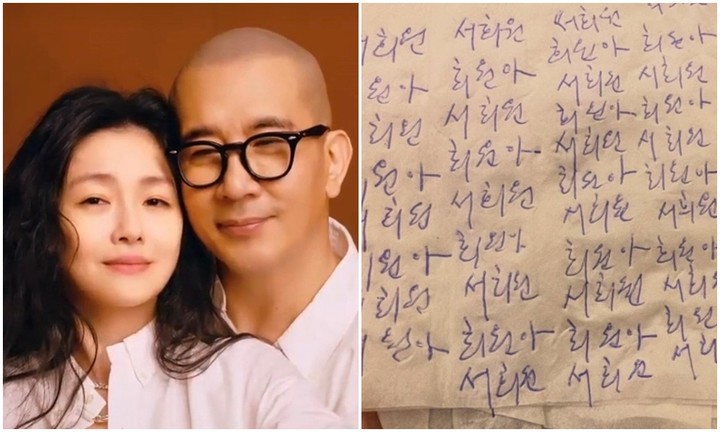 희원 서희원 서희원
희원아 희원아
원아 희원아 서희원 서희원
희원 서희원 희원아 희원아
희원아 서희원 서희원
원아 서희원 희원아 희원아
희원 서희원 서희원
원아 희원아 희원아 희원아
희원 서희원 서희원 서희
원아 희원아 희원아 희원
서희원 서희원 서희